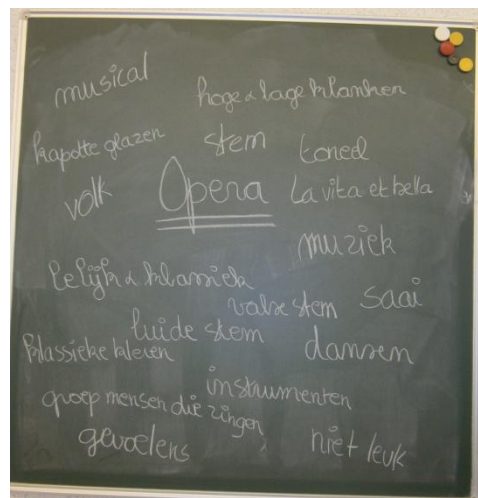 musical
hoge & lage klanken
kapotte glazen
stem
toneel
volk
Opera
La vita et bella
muziek
lelijk & klassiek
valse stem
saai
luide stem
klassieke kleren
dansen
instrumenten
groep mensen die zingen
gevoelens
niet leuk